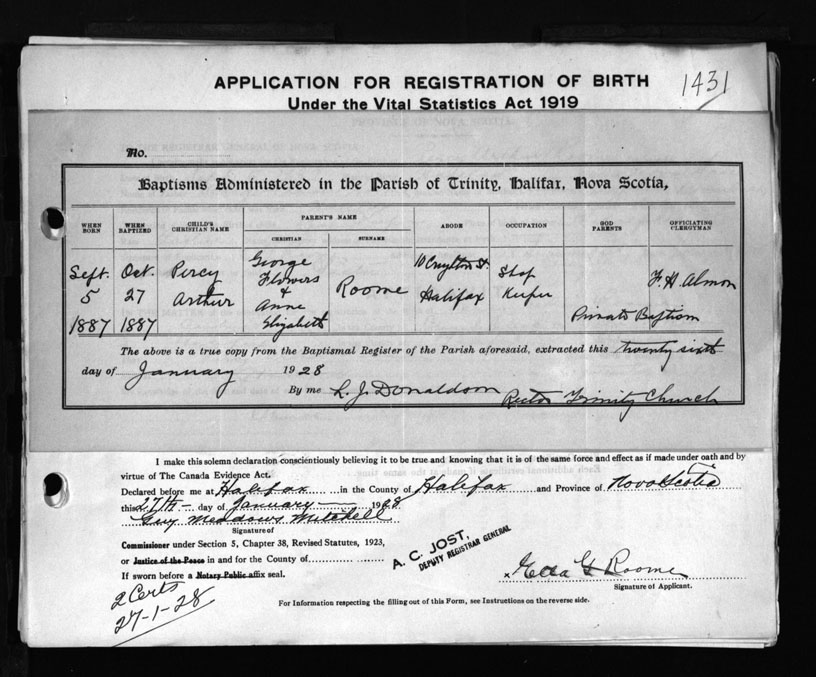 APPLICATION FOR REGISTRATION OF BIRTH
1431
Under the Vital Statistics Act 1919
No.
Baptisms Administered in the Parish of Trinity, Halifax, Nova Scotia,
WHEN BORN
WHEN BAPTIZED
CHILD'S CHRISTIAN NAME
PARENT'S NAME
CHRISTIAN
SURNAME
ABODE
OCCUPATION
GOD PARENTS
OFFICIATING CLERGYMAN
Sept. 5 1887
Oct. 27 1887
Percy Arthur
George Flowers & Anne Elizabeth
Roome
10 St. Halifax
Shop Keeper
Private Baptism
F. H. Almon
The above is a true copy from the Baptismal Register of the Parish aforesaid, extracted this twenty sixth
day of January 1928
By me L. J. Donaldson Rector Trinity Church
I make this solemn declaration conscientiously believing it to be true and knowing that it is of the same force and effect as if made under oath and by
virtue of The Canada Evidence Act.
Declared before me at Halifax in the County of Halifax and Province of Nova Scotia
this 27th day of January 1928
Guy Meadows Mitchell
Signature of
Commissioner under Section 5, Chapter 38, Revised Statutes, 1923,
or Justice of the Peace in and for the County of
If sworn before a Notary Public affix seal.
A. C. JOST,
DEPUTY REGISTRAR GENERAL
Roome
Signature of Applicant.
2 Certs
27-1-28
For Information respecting the filling out of this Form, see Instructions on the reverse side.